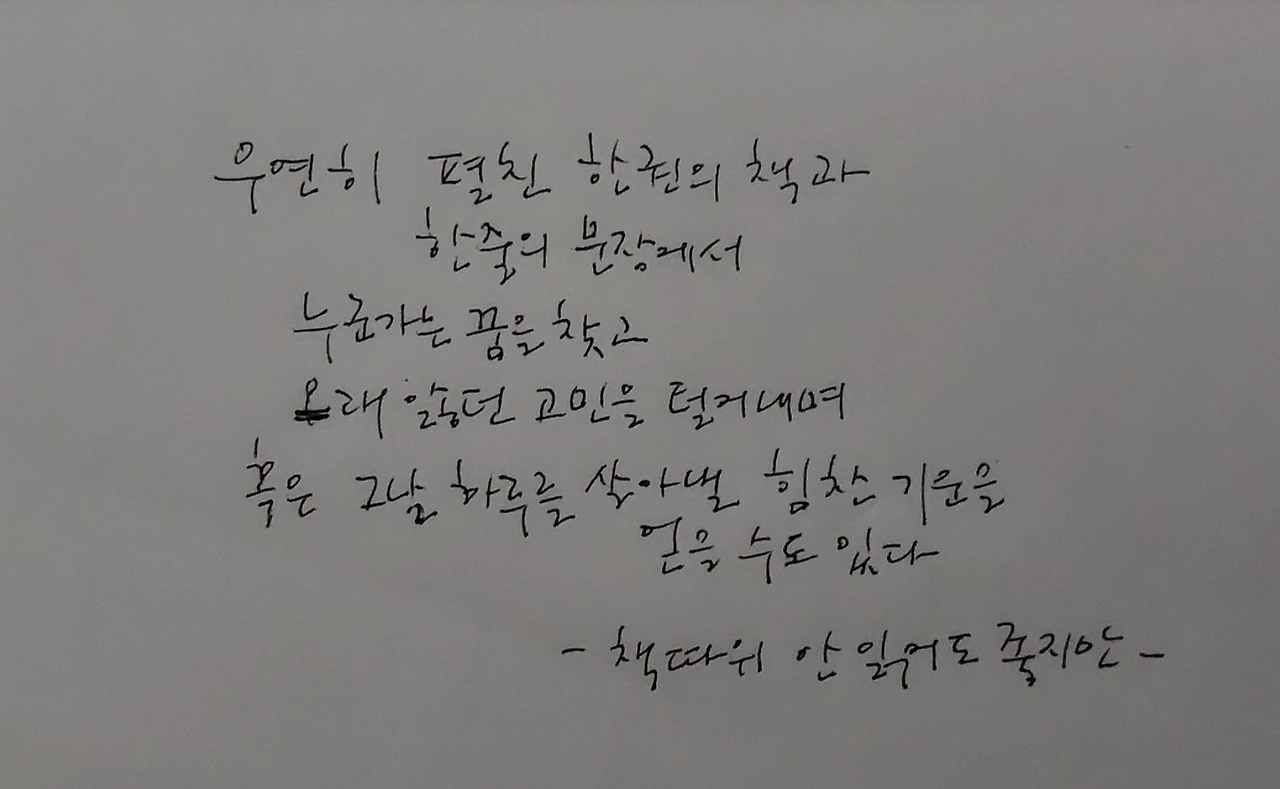 우연히 펼친 한권의 책과
한줄의 문장에서
누군가는 꿈을 찾고
오래 앓던 고민을 털어내며
혹은 그날 하루를 살아낼 힘찬 기운을
얻을 수도 있다
- 책따위 안 읽어도 좋지만 -